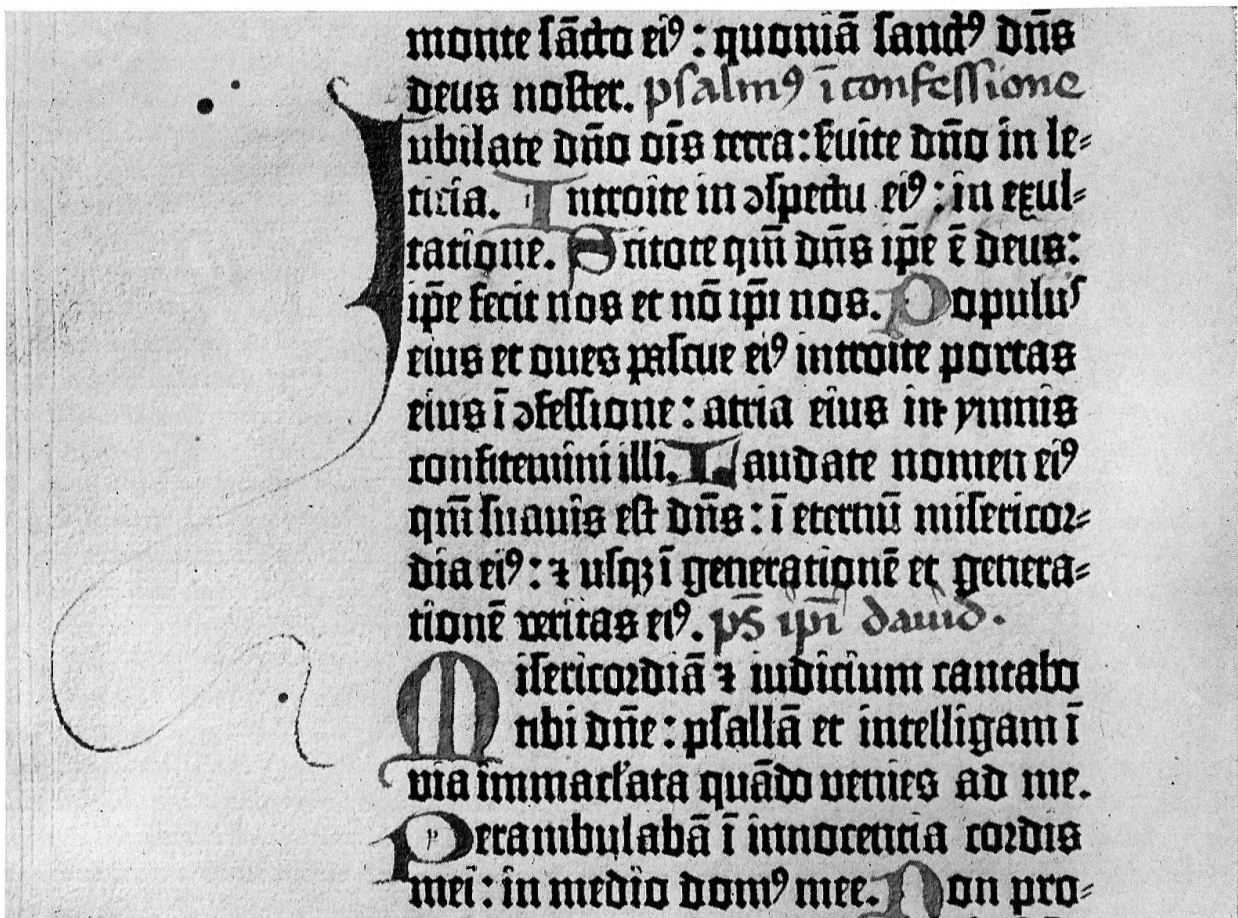 monte sācto ei⁹ : quoniā sanct⁹ dn̄s
deus noster. psalm⁹ ī confessione
Jubilate dn̄o oīs terra : ẜuite dn̄o in le⸗
ticia. Introite in ɔspectu ei⁹ : in exul⸗
tatione. Scitote qm̄ dn̄s ip̄e ē deus :
ip̄e fecit nos et nō ip̄i nos. Populus
eius et oues pascue ei⁹ introite portas
eius ī ɔfessione : atria eius in ymnis
confitemini illi. Laudate nomen ei⁹
qm̄ suauis est dn̄s : ī eternū misericor⸗
dia ei⁹ : ⁊ usqꝫ ī generationē et genera⸗
tionē veritas ei⁹. ps̄ ip̄i david.
Misericordiā ⁊ iudicium cantabo
tibi dn̄e : psallā et intelligam ī
via immacl'ata quādo venies ad me.
Perambulabā ī innocentia cordis
mei : in medio dom⁹ mee. Non pro⸗